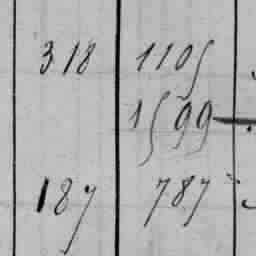 318 1105
1599
187 787